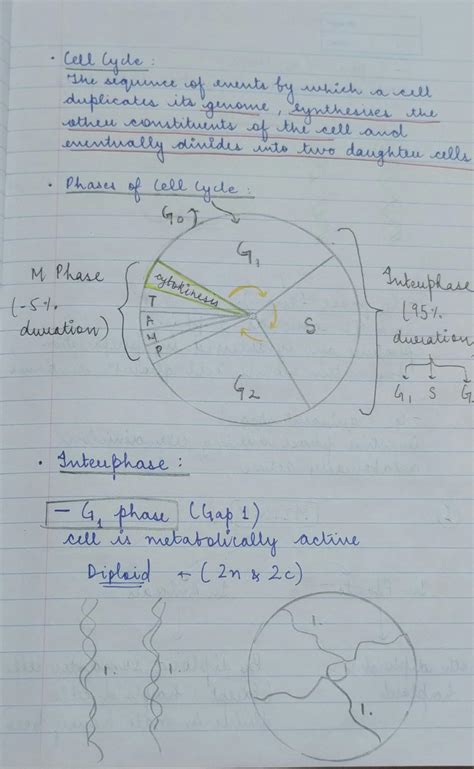 • Cell Cycle :
The sequence of events by which a cell
duplicates its genome, synthesises the
other constituents of the cell and
eventually divides into two daughter cells
• Phases of Cell Cycle :
G0
G1
M Phase
(~5%
duration)
cytokinesis
T
A
M
P
S
G2
Interphase
(95%
duration
G1 S G2
• Interphase :
- G1 phase (Gap 1)
cell is metabolically active
Diploid - (2n & 2c)
1. 1. 1. 1. 1.